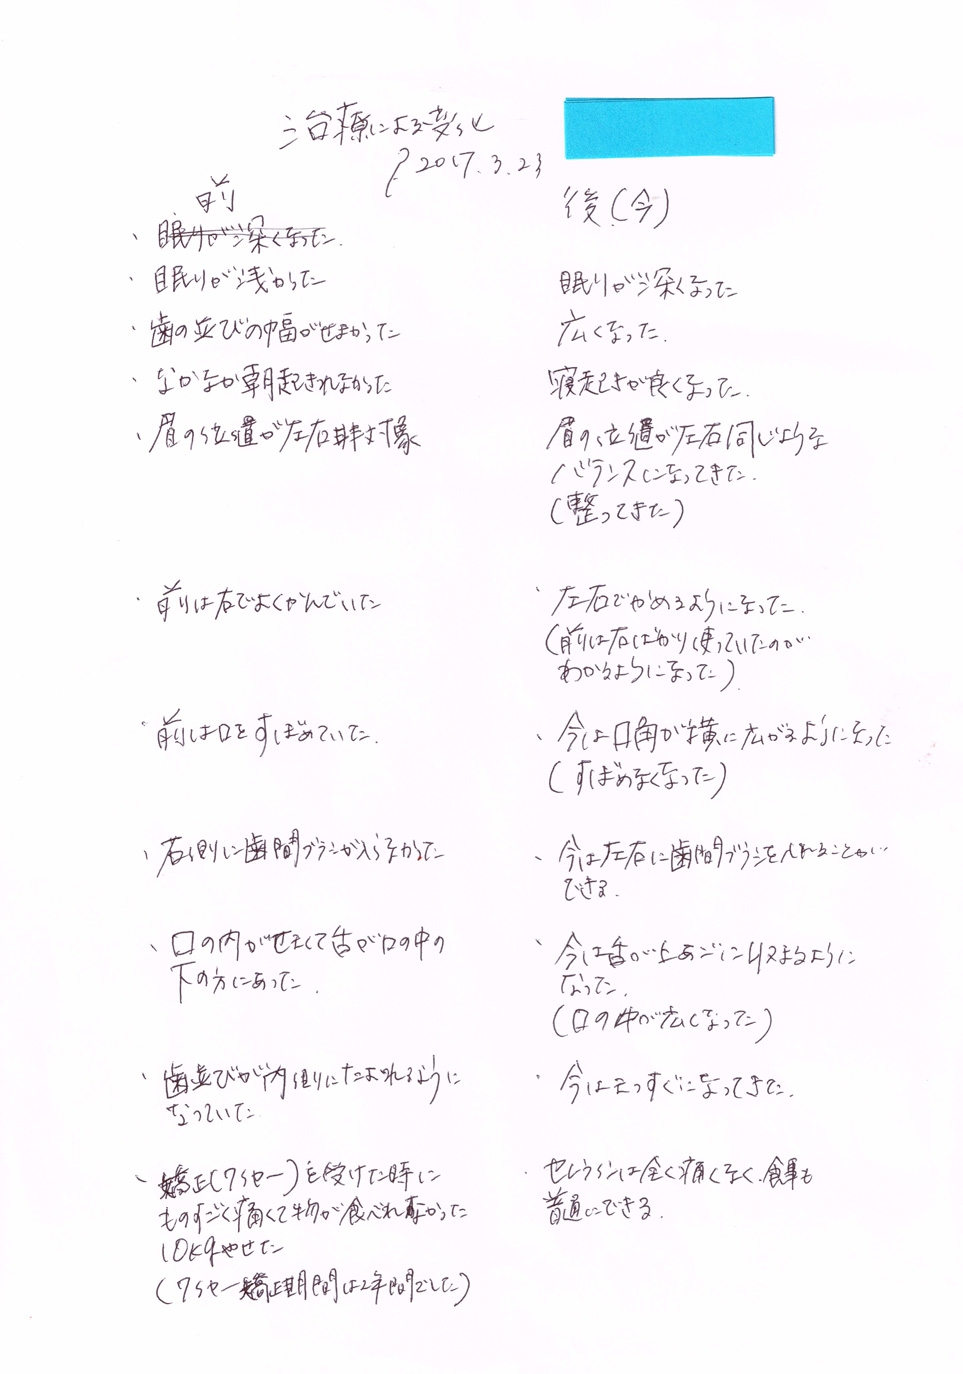 治療による変化
2017.3.23
前
後(今)
、眠りが深くなった.
・眠りが浅かった
眠りが深くなった
・歯の並びの幅がせまかった
広くなった.
・なかなか朝起きれなかった
寝起きが良くなった.
・眉の位置が左右非対像
眉の位置が左右同じような
バランスになってきた.
(整ってきた)
・前は右でよくかんでいた
・左右でかめるようになった.
(前は右ばかり使っていたのが
わかるようになった)
・前は口をすぼめていた.
、今は口角が横に広がるようになった
(すぼめなくなった)
、右側に歯間ブラシが入らなかった
、今は左右に歯間ブラシを入れることが
できる.
、口の内がせまくて舌が口の中の
下の方にあった.
、今は舌が上あごに収まるように
なった.
(口の中が広くなった)
、歯並びが内側にたおれるように
なっていた.
・今はまっすぐになってきた.
、矯正(ワイヤー)を受けた時に
ものすごく痛くて物が食べれなかった
10kgやせた
(ワイヤー矯正期間は2年間でした)
・セレラインは全く痛くなく、食事も
普通にできる.